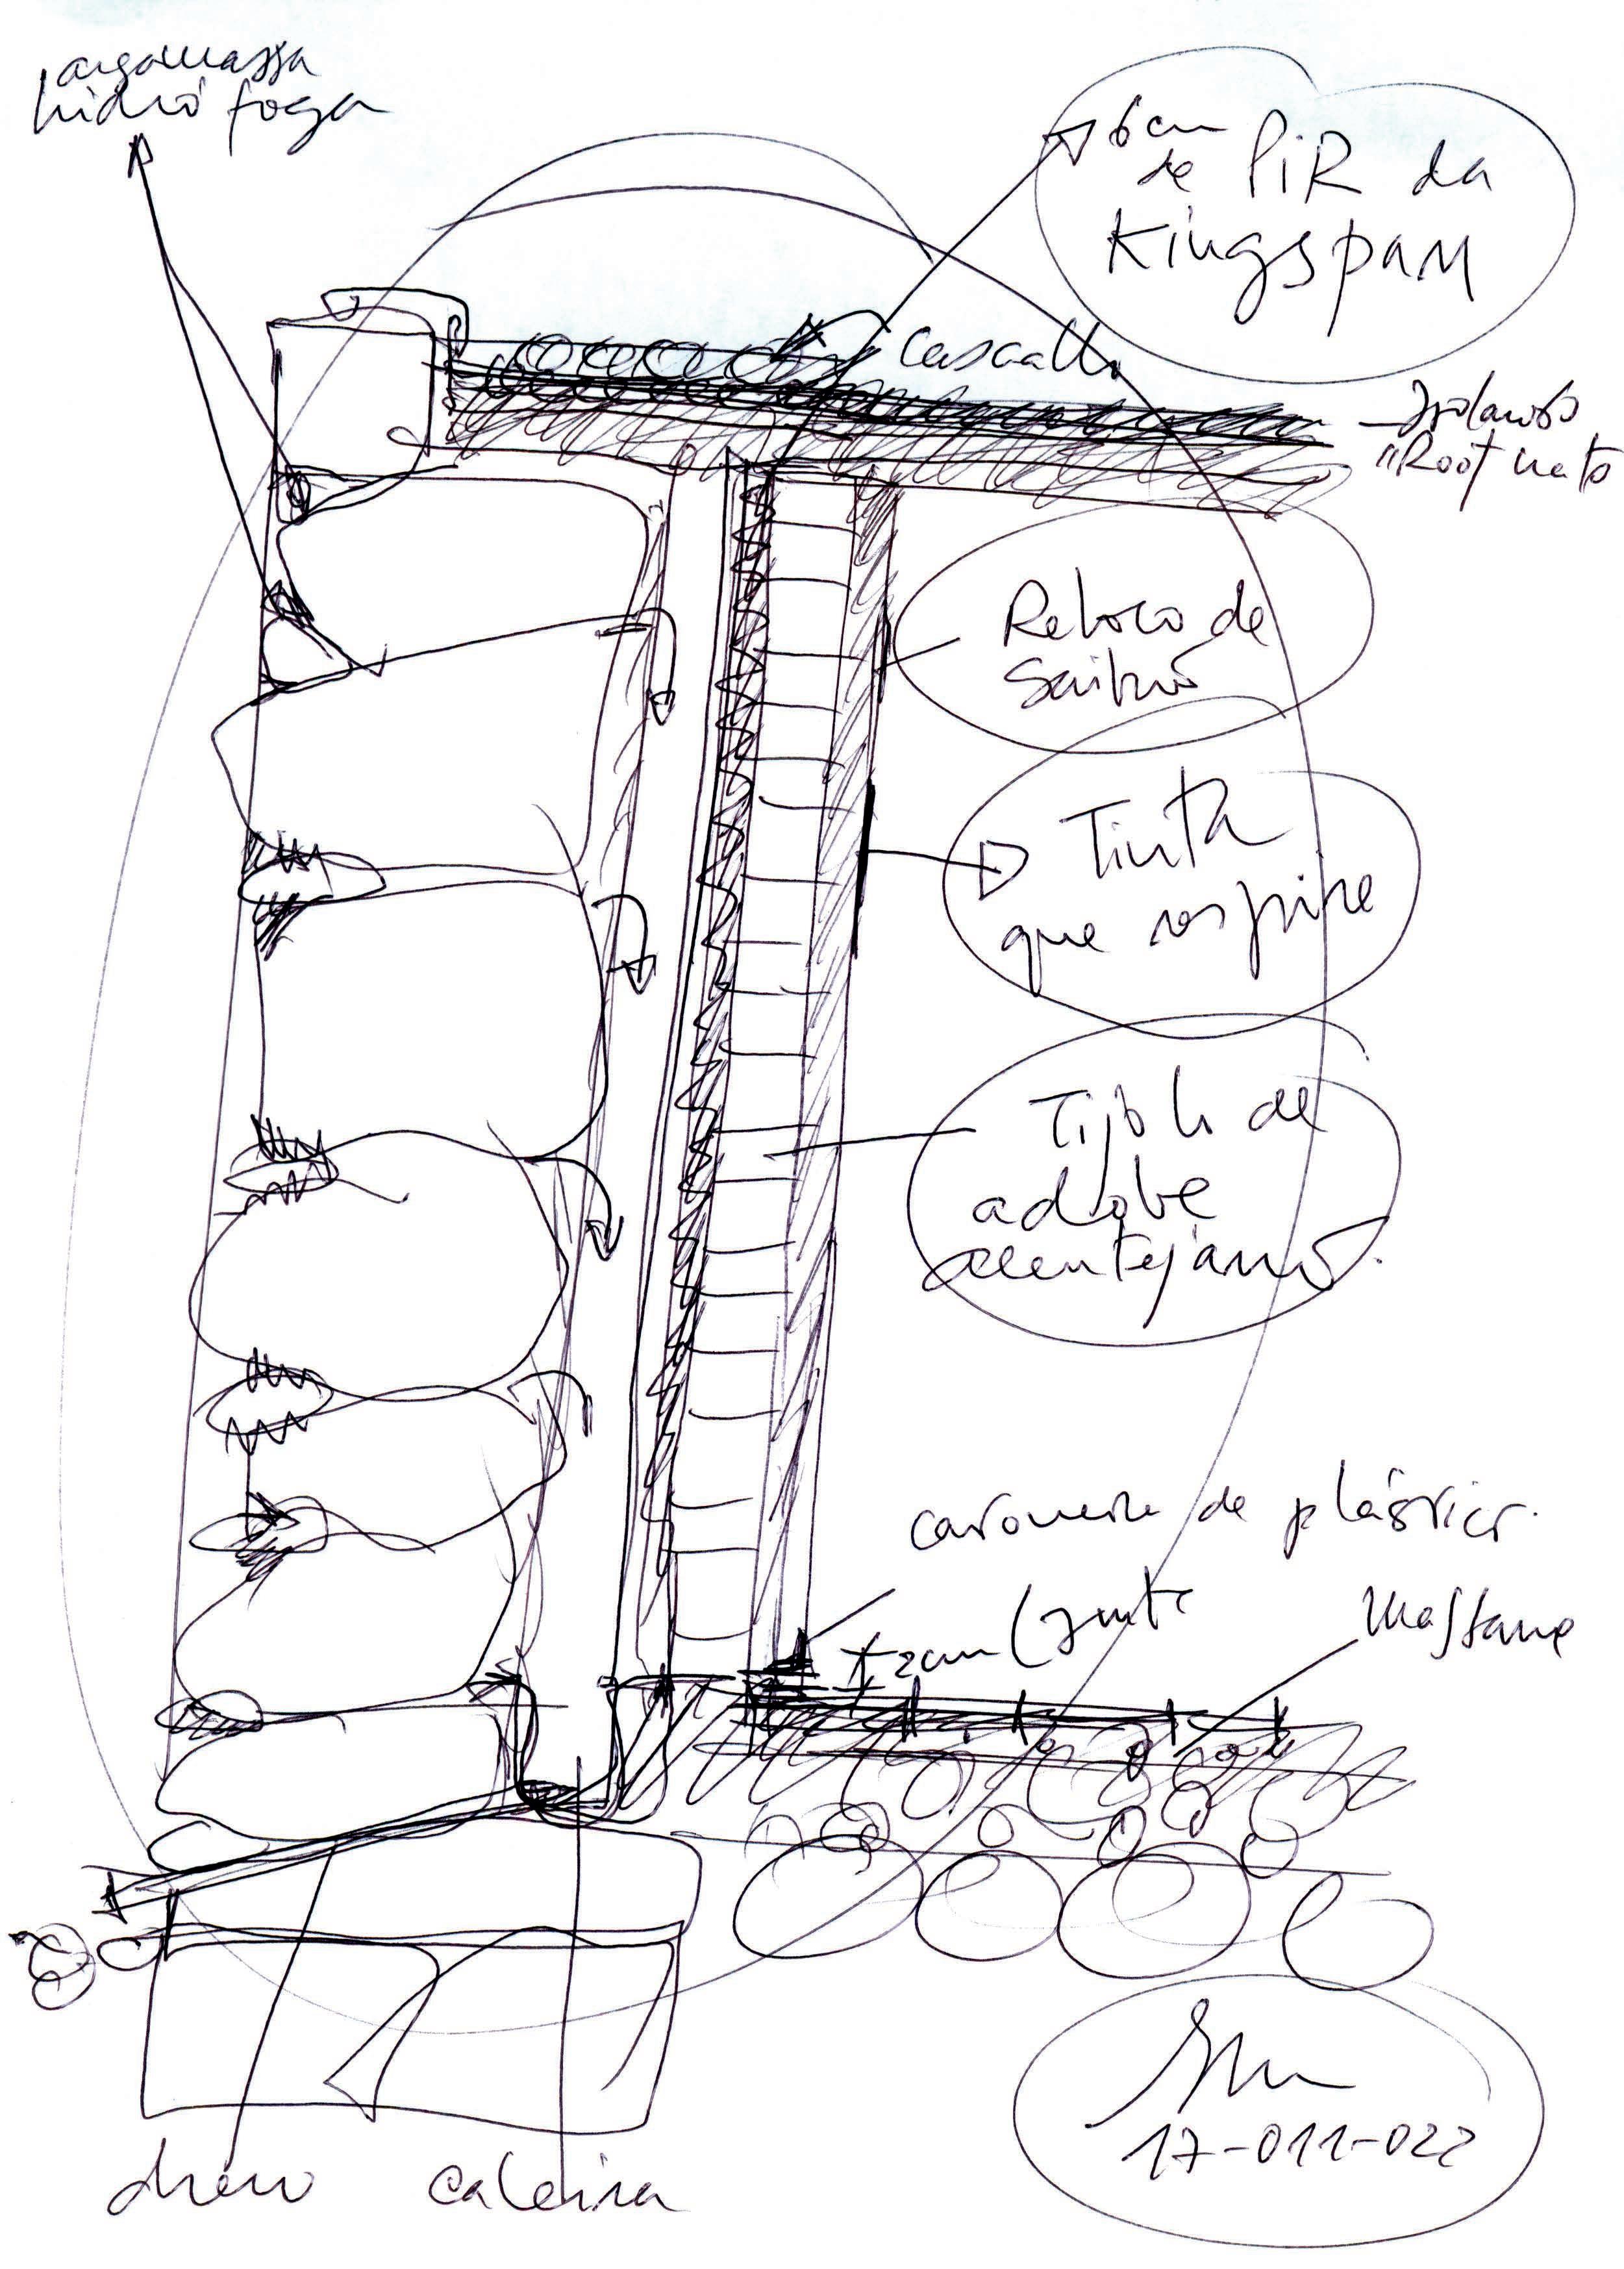 argamassa
hidrófoga
6 cm
de PIR da
Kingspan
Cascalho
Isolamento
"Roofmate
Reboco de
Saibro
Tinta
que respire
Tijolo de
adobe
alentejano.
de plástico.
2cm (junta
dreno
caleira
17-011-022